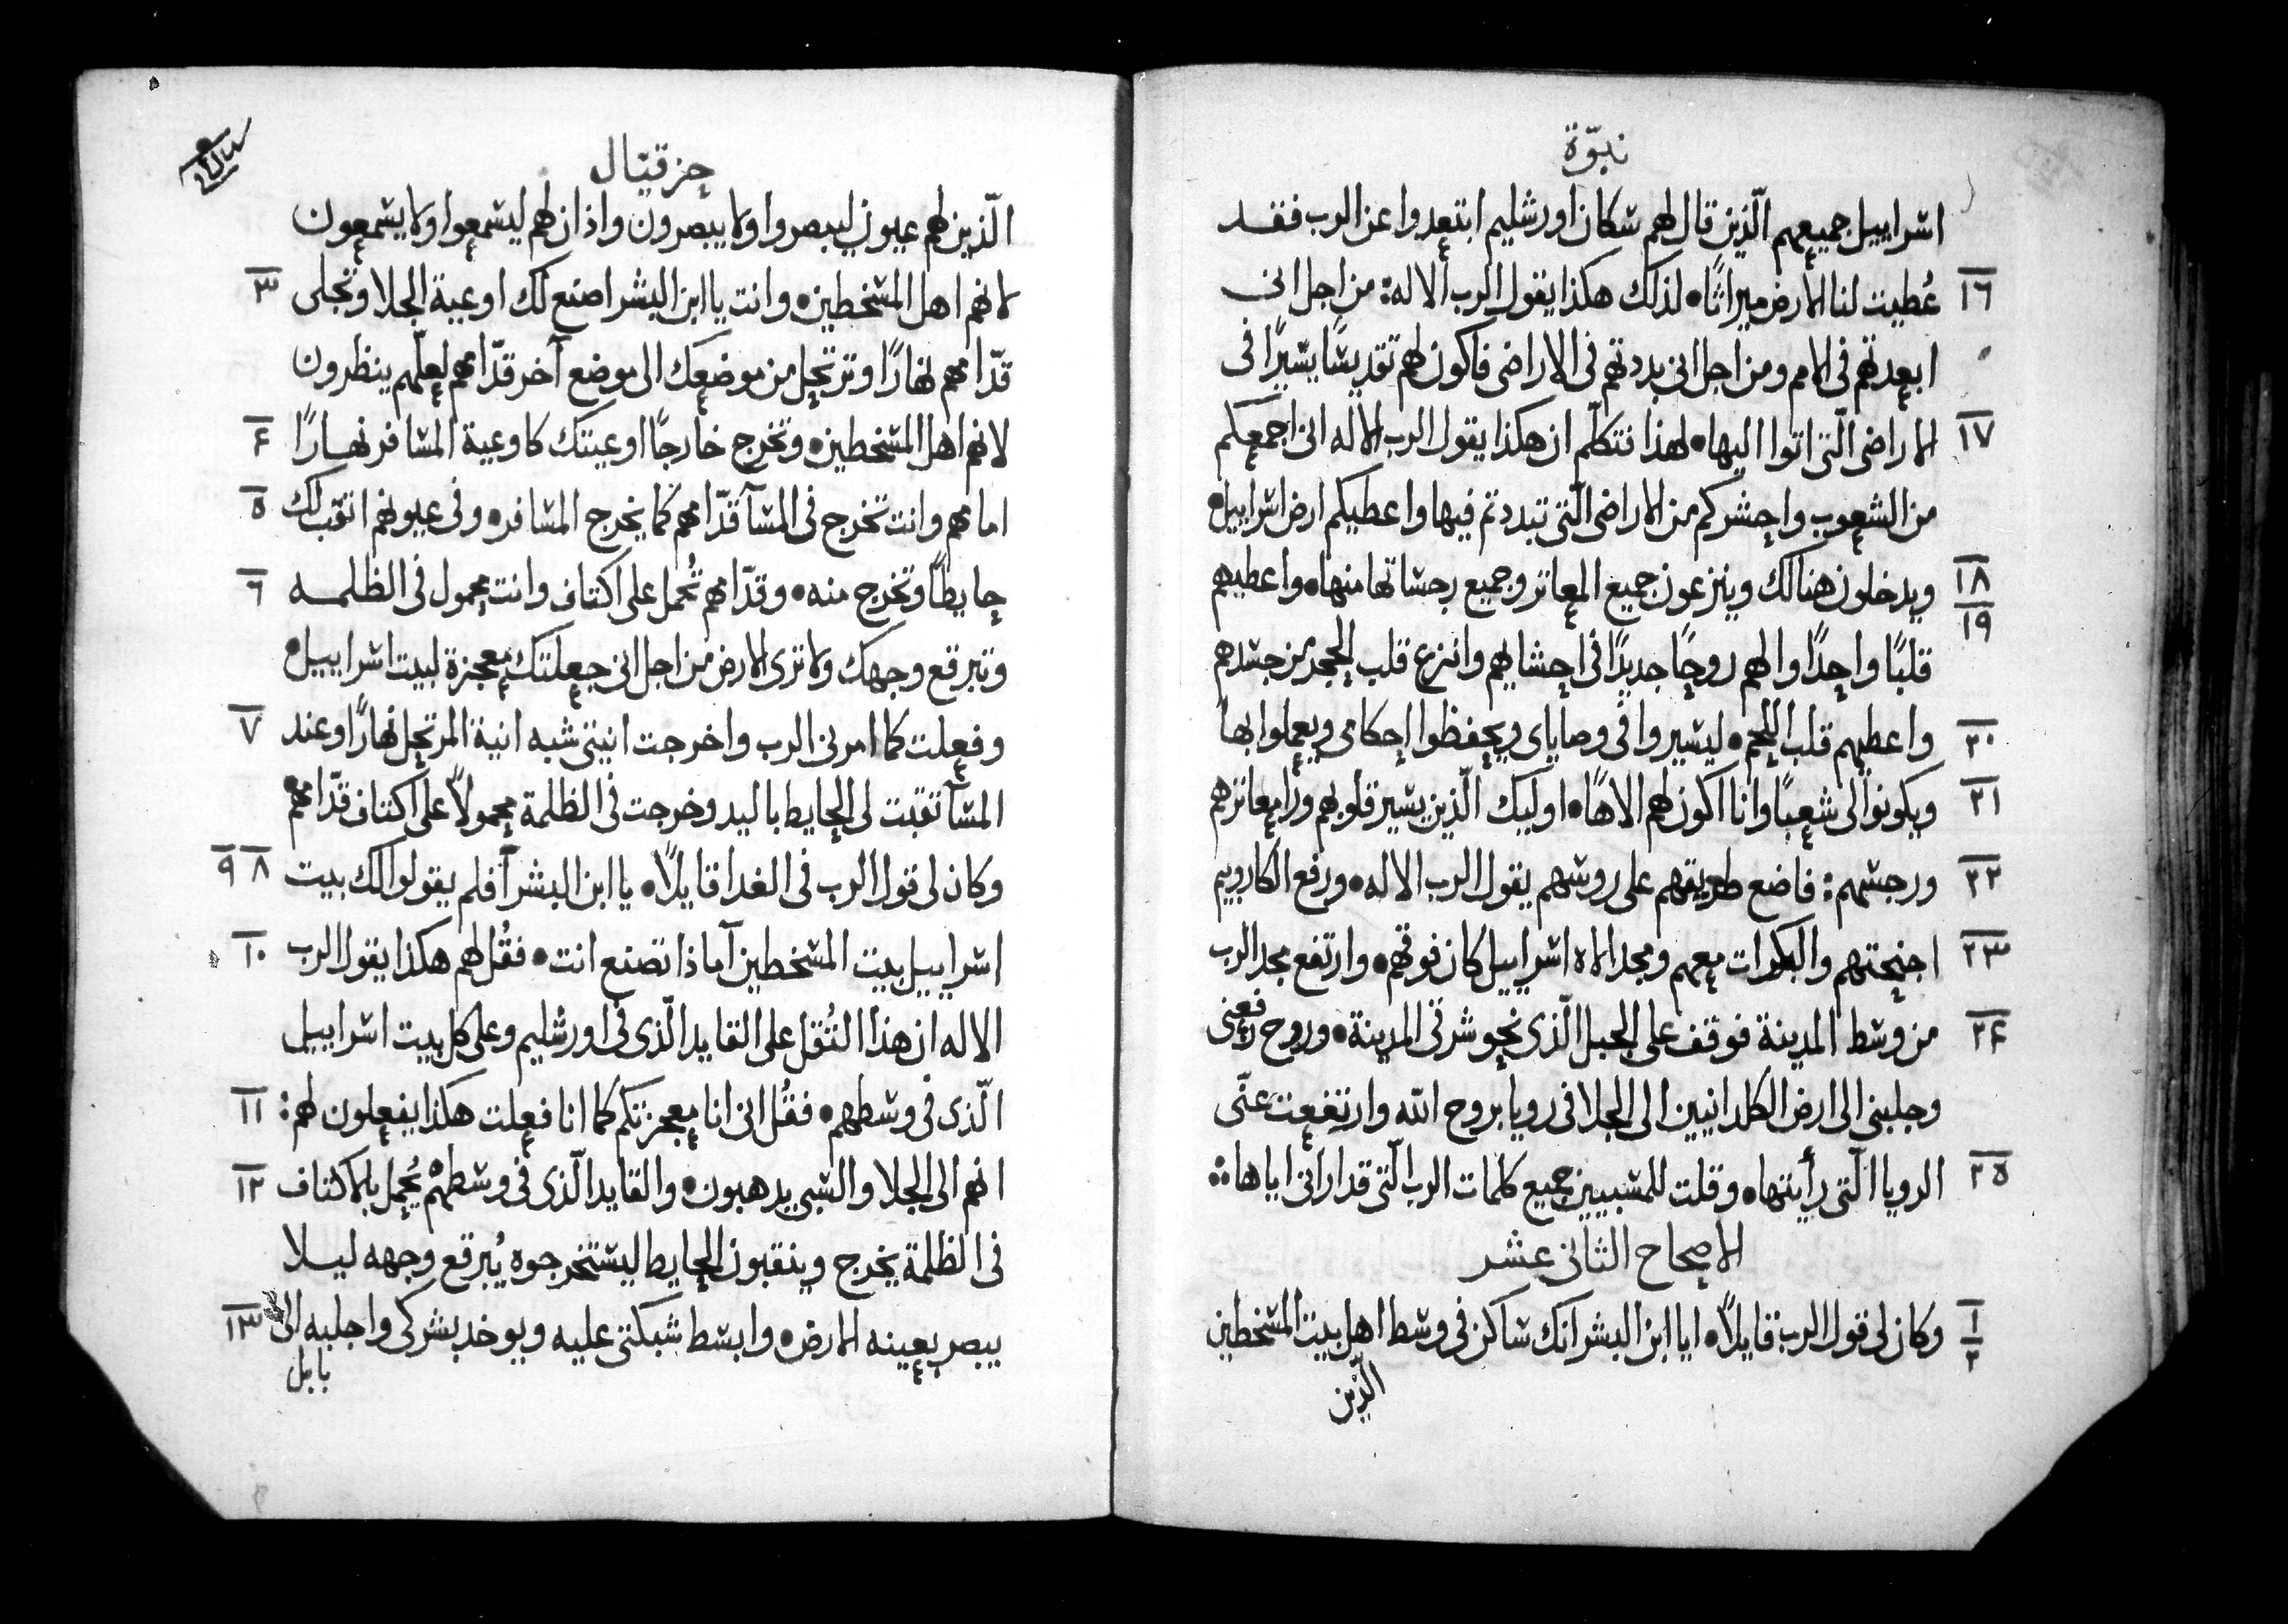 نبوّة
اسراييل جميعهم الّذين قال لهم سكان اورشليم ابتعدوا عن الرب فقد
١٦ عُطيت لنا الارض ميراثًا، لذلك هكذا يقول الرب الاله: من اجل انى
ابعدتهم فى الامم ومن اجل انى بددتهم فى الاراضى فاكون لهم تقديسًا يسيرًا فى
١٧ الاراضى الّتى اتوا اليها، لهذا تتكلّم ان هكذا يقول الرب الاله انى اجمعكم
من الشعوب واحشركم من الاراضى الّتى تبددتم فيها واعطيكم ارض اسراييل،
١٨ ١٩ ويدخلون هنالك وينزعون جميع المعاثر وجميع رجساتها منها، واعطيهم
قلبًا واحدًا والهم روحًا جديدًا فى احشايهم وانزع قلب الحجر من جسدهم
٢٠ واعطيهم قلب اللحم، ليسيروا فى وصاياى ويحفظوا احكامى ويعملوا بها
٢١ ويكونوا لى شعبًا وانا اكون لهم الاهًا، اوليك الّذين يسير قلوبهم ورا معاثرهم
٢٢ ورجسهم: فاضع طريقهم على روسهم يقول الرب الاله، ورفع الكاروبيم
٢٣ اجنحتهم والبكرات معهم ومجد الاه اسراييل كان فوقهم، وارتفع مجد الرب
٢۴ من وسط المدينة فوقف على الجبل الّذى نحو شرقى المدينة، وروح رفعنى
وجلبنى الى ارض الكلدانيين الى الجلا فى رويا بروح الله وارتفعت عنّى
٢٥ الرويا الّتى رأيتها، وقلت للمسبيين جميع كلمات الرب الّتى قد ارانى اياها:
الاصحاح الثانى عشر
١ ٢ وكان لى قول الرب قايلاً، ايا ابن البشر انك ساكن فى وسط اهل بيت المسخطين
الّذين
حزقيال
الّذين لهم عيون ليبصروا ولا يبصرون واذان لهم ليسمعوا ولا يسمعون
٣ لانهم اهل المسخطين، وانت يا ابن البشر اصنع لك اوعية الجلا وتجلى
قدّامهم نهارًا وترتحل من موضعك الى موضع آخر قدّامهم لعلّهم ينظرون
۴ لانهم اهل المسخطين، وتخرج خارجًا اوعيتك كاوعية المسافر نهارًا
٥ امامهم وانت تخرج فى المسآ قدّامهم كما يخرج المسافر، وفى عيونهم انقب لك
٦ حايطًا وتخرج منه، وقدّامهم تُحمل على اكتاف وانت محمول فى الظلمه
وتبرقع وجهك ولا ترى الارض من اجل انى جعلتك معجزة لبيت اسراييل،
٧ وفعلت كما امرنى الرب واخرجت انيتى شبه انية المرتحل نهارًا وعند
المسآ نقبت لى الحايط باليد وخرجت فى الظلمة محمولاً على اكتاف قدّامهم،
٨ ٩ وكان لى قول الرب فى الغدا قايلاً، يا ابن البشر آفلم يقولوا لك بيت
١٠ اسراييل بيت المسخطين آماذا تصنع انت، فقُل لهم هكذا يقول الرب
الاله ان هذا الثُقل على القايد الّذى فى اورشليم وعلى كل بيت اسراييل
١١ الّذى فى وسطهم، فقُل انى انا معجزتكم كما انا فعلت هكذا يفعلون لهم:
١٢ انهم الى الجلا والسبى يدهبون، والقايد الّذى فى وسطهم يُحمل بالاكتاف
فى الظلمة يخرج وينقبون الحايط ليستخرجوه يُبرقع وجهه ليلا
١٣ يبصر بعينه الارض، وابسط شبكتى عليه ويوخد بشركى واجلبه الى
بابل